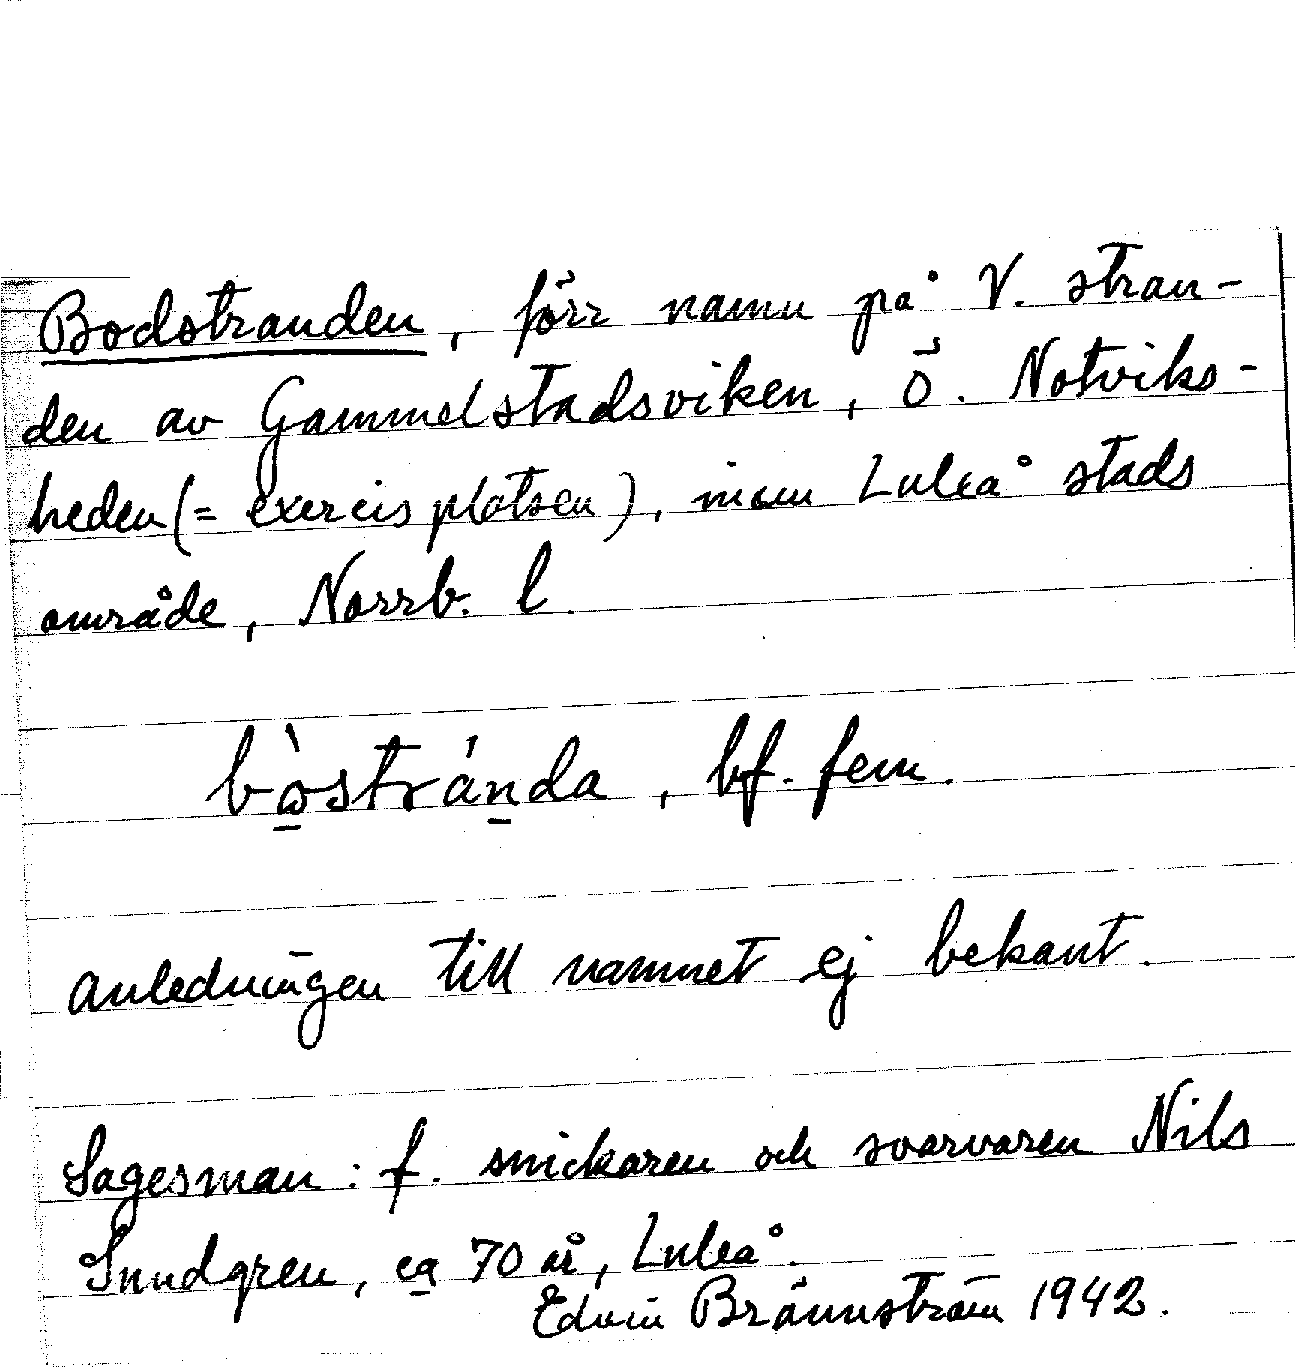 Bodstranden, förr namn på V. stran-
den av Gammelstadsviken, Ö. Notviks-
heden (= exercisplatsen), inom Luleå stads
område, Norrb. l.
bò̠strán̠da, bf. fem.
Anledningen till namnet ej bekant.
Sagesman: f. snickaren och svarvaren Nils
Sundgren, ca 70 år, Luleå.
Edvin Brännström 1942.